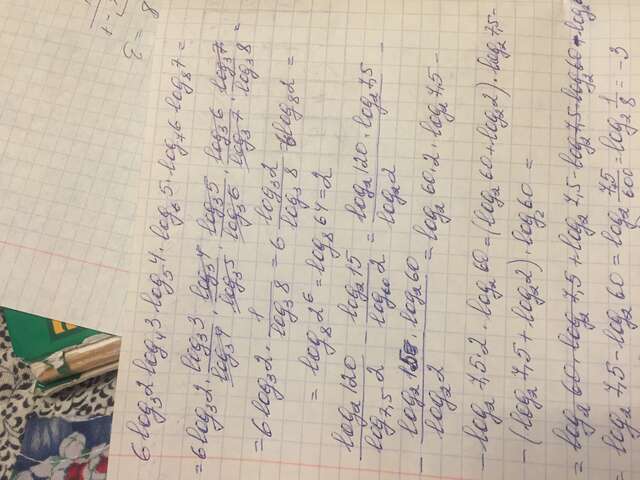 6 log₃2 log₄3 · log₅4 · log₆5 · log₇6 log₈7 =
= 6 log₃2 · log₃3/log₃4 · log₃4/log₃5 · log₃5/log₃6 · log₃6/log₃7 · log₃7/log₃8 =
= 6 log₃2 · 1/log₃8 = 6 log₃2/log₃8 = 6 log₈2 =
= log₈2⁶ = log₈64 = 2
log₂120/log₇,₅2 - log₂15/log₆₀2 = log₂120 · log₂7,5/log₂2 -
- log₂15 · log₂60/log₂2 = log₂60·2 · log₂7,5 -
- log₂7,5·2 · log₂60 = (log₂60 + log₂2) · log₂7,5 -
- (log₂7,5 + log₂2) · log₂60 =
= log₂60 · log₂7,5 + log₂7,5 - log₂7,5 · log₂60 - log₂6
= log₂7,5 - log₂60 = log₂ 7,5/60 = log₂ 1/8 = -3